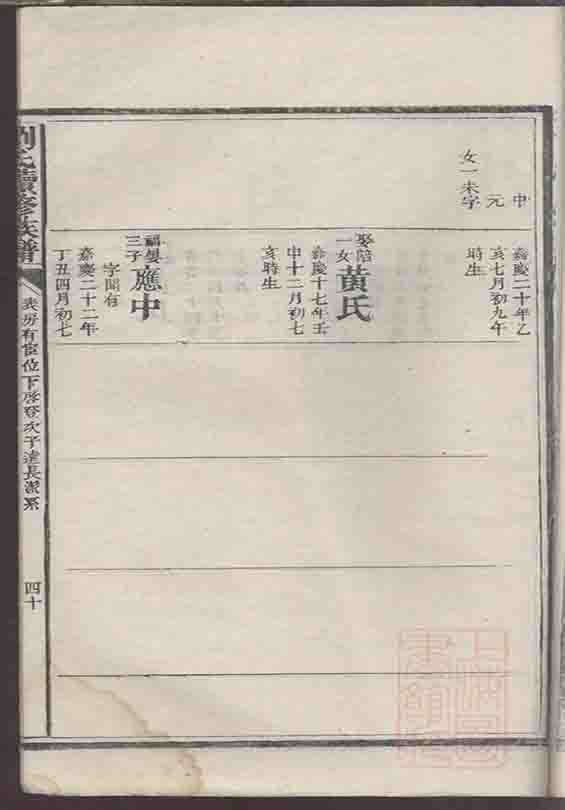 中
元
女一未字
嘉慶二十年乙
亥七月初九午
時生
娶陪
一女
黄氏
嘉慶十七年壬
申十二月初七
亥時生
福嬰
三子
應中
字開有
嘉慶二十二年
丁丑四月初七
劉氏續修族譜
房有宦位下啓登次子達長潔系
四十